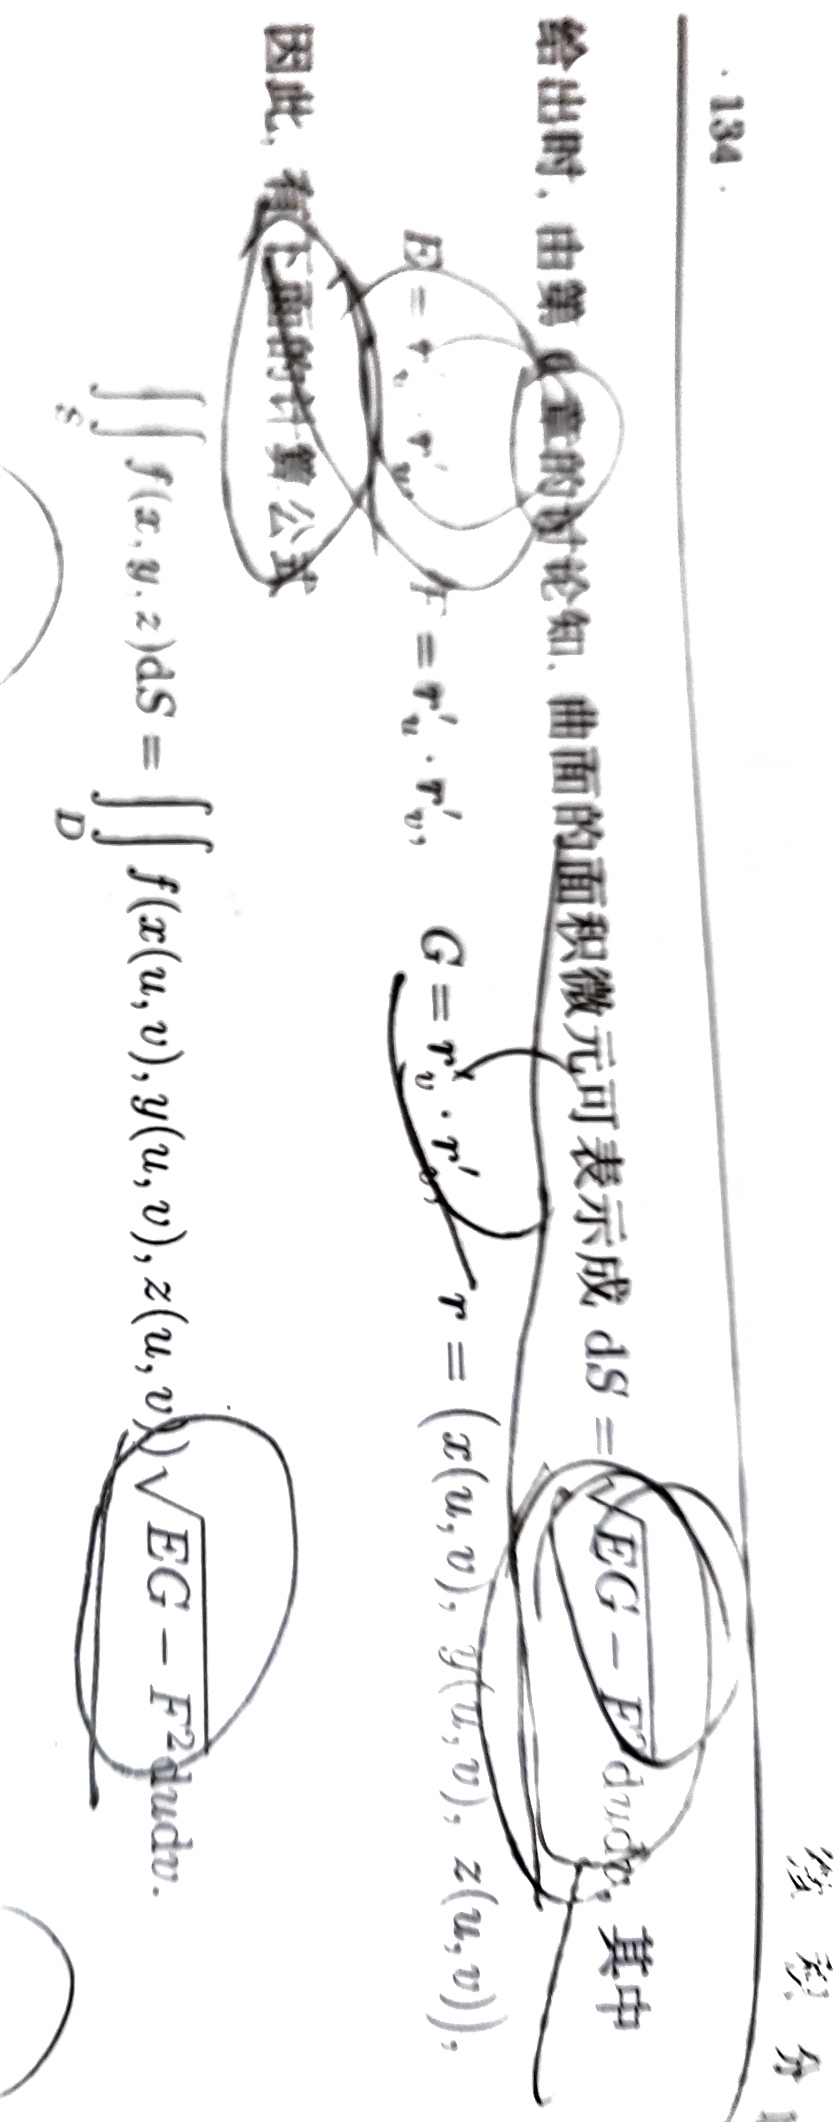 · 134 ·
微 积 分
给出时, 由第 章的讨论知, 曲面的面积微元可表示成 dS = √(EG − F²)dudv, 其中
E = r′ᵤ · r′ᵤ, F = r′ᵤ · r′ᵥ, G = r′ᵥ · r′ᵥ, r = (x(u, v), y(u, v), z(u, v)),
因此, 有下面的计算公式
∬_S f(x, y, z)dS = ∬_D f(x(u, v), y(u, v), z(u, v))√(EG − F²)dudv.